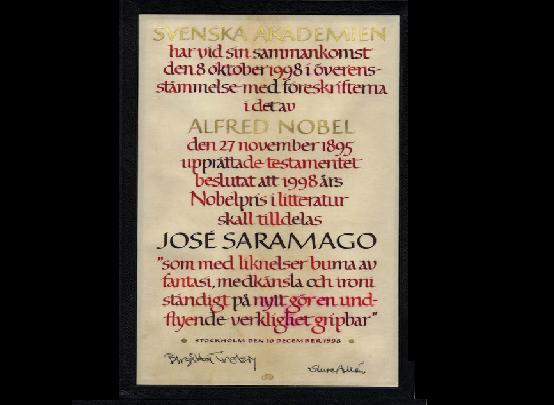 SVENSKA AKADEMIEN
har vid sin sammankomst
den 8 oktober 1998 i överens-
stämmelse med föreskrifterna
i det av
ALFRED NOBEL
den 27 november 1895
upprättade testamentet
beslutat att 1998 års
Nobelpris i litteratur
skall tilldelas
JOSÉ SARAMAGO
"som med liknelser burna av
fantasi, medkänsla och ironi
ständigt på nytt gör en und-
flyende verklighet gripbar"
STOCKHOLM DEN 10 DECEMBER 1998